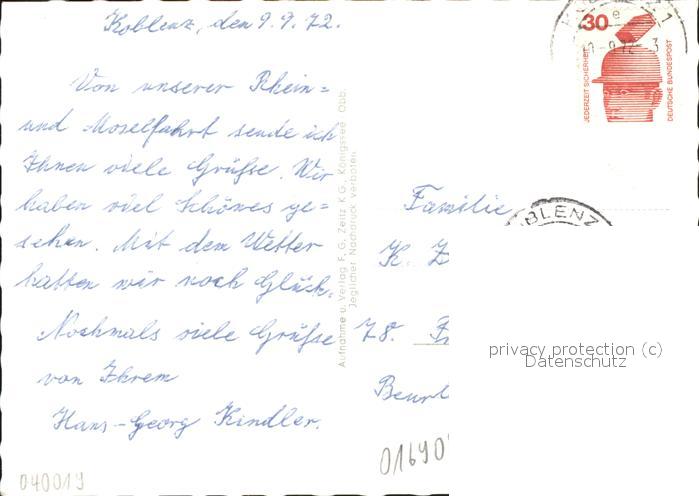 Koblenz, den 9.9.72.
Von unserer Rhein=
und Moselfahrt sende ich
Ihnen viele Grüße. Wir
haben viel Schönes ge=
sehen. Mit dem Wetter
hatten wir noch Glück.
Nochmals viele Grüße
von Ihrem
Hans-Georg Kindler.
040019
Aufnahme u. Verlag F. G. Zeitz K G., Königssee Obb.
Jeglicher Nachdruck verboten
30
JEDERZEIT SICHERHEIT
DEUTSCHE BUNDESPOST
Familie
K. Z
78.
privacy protection (c)
Datenschutz
01690